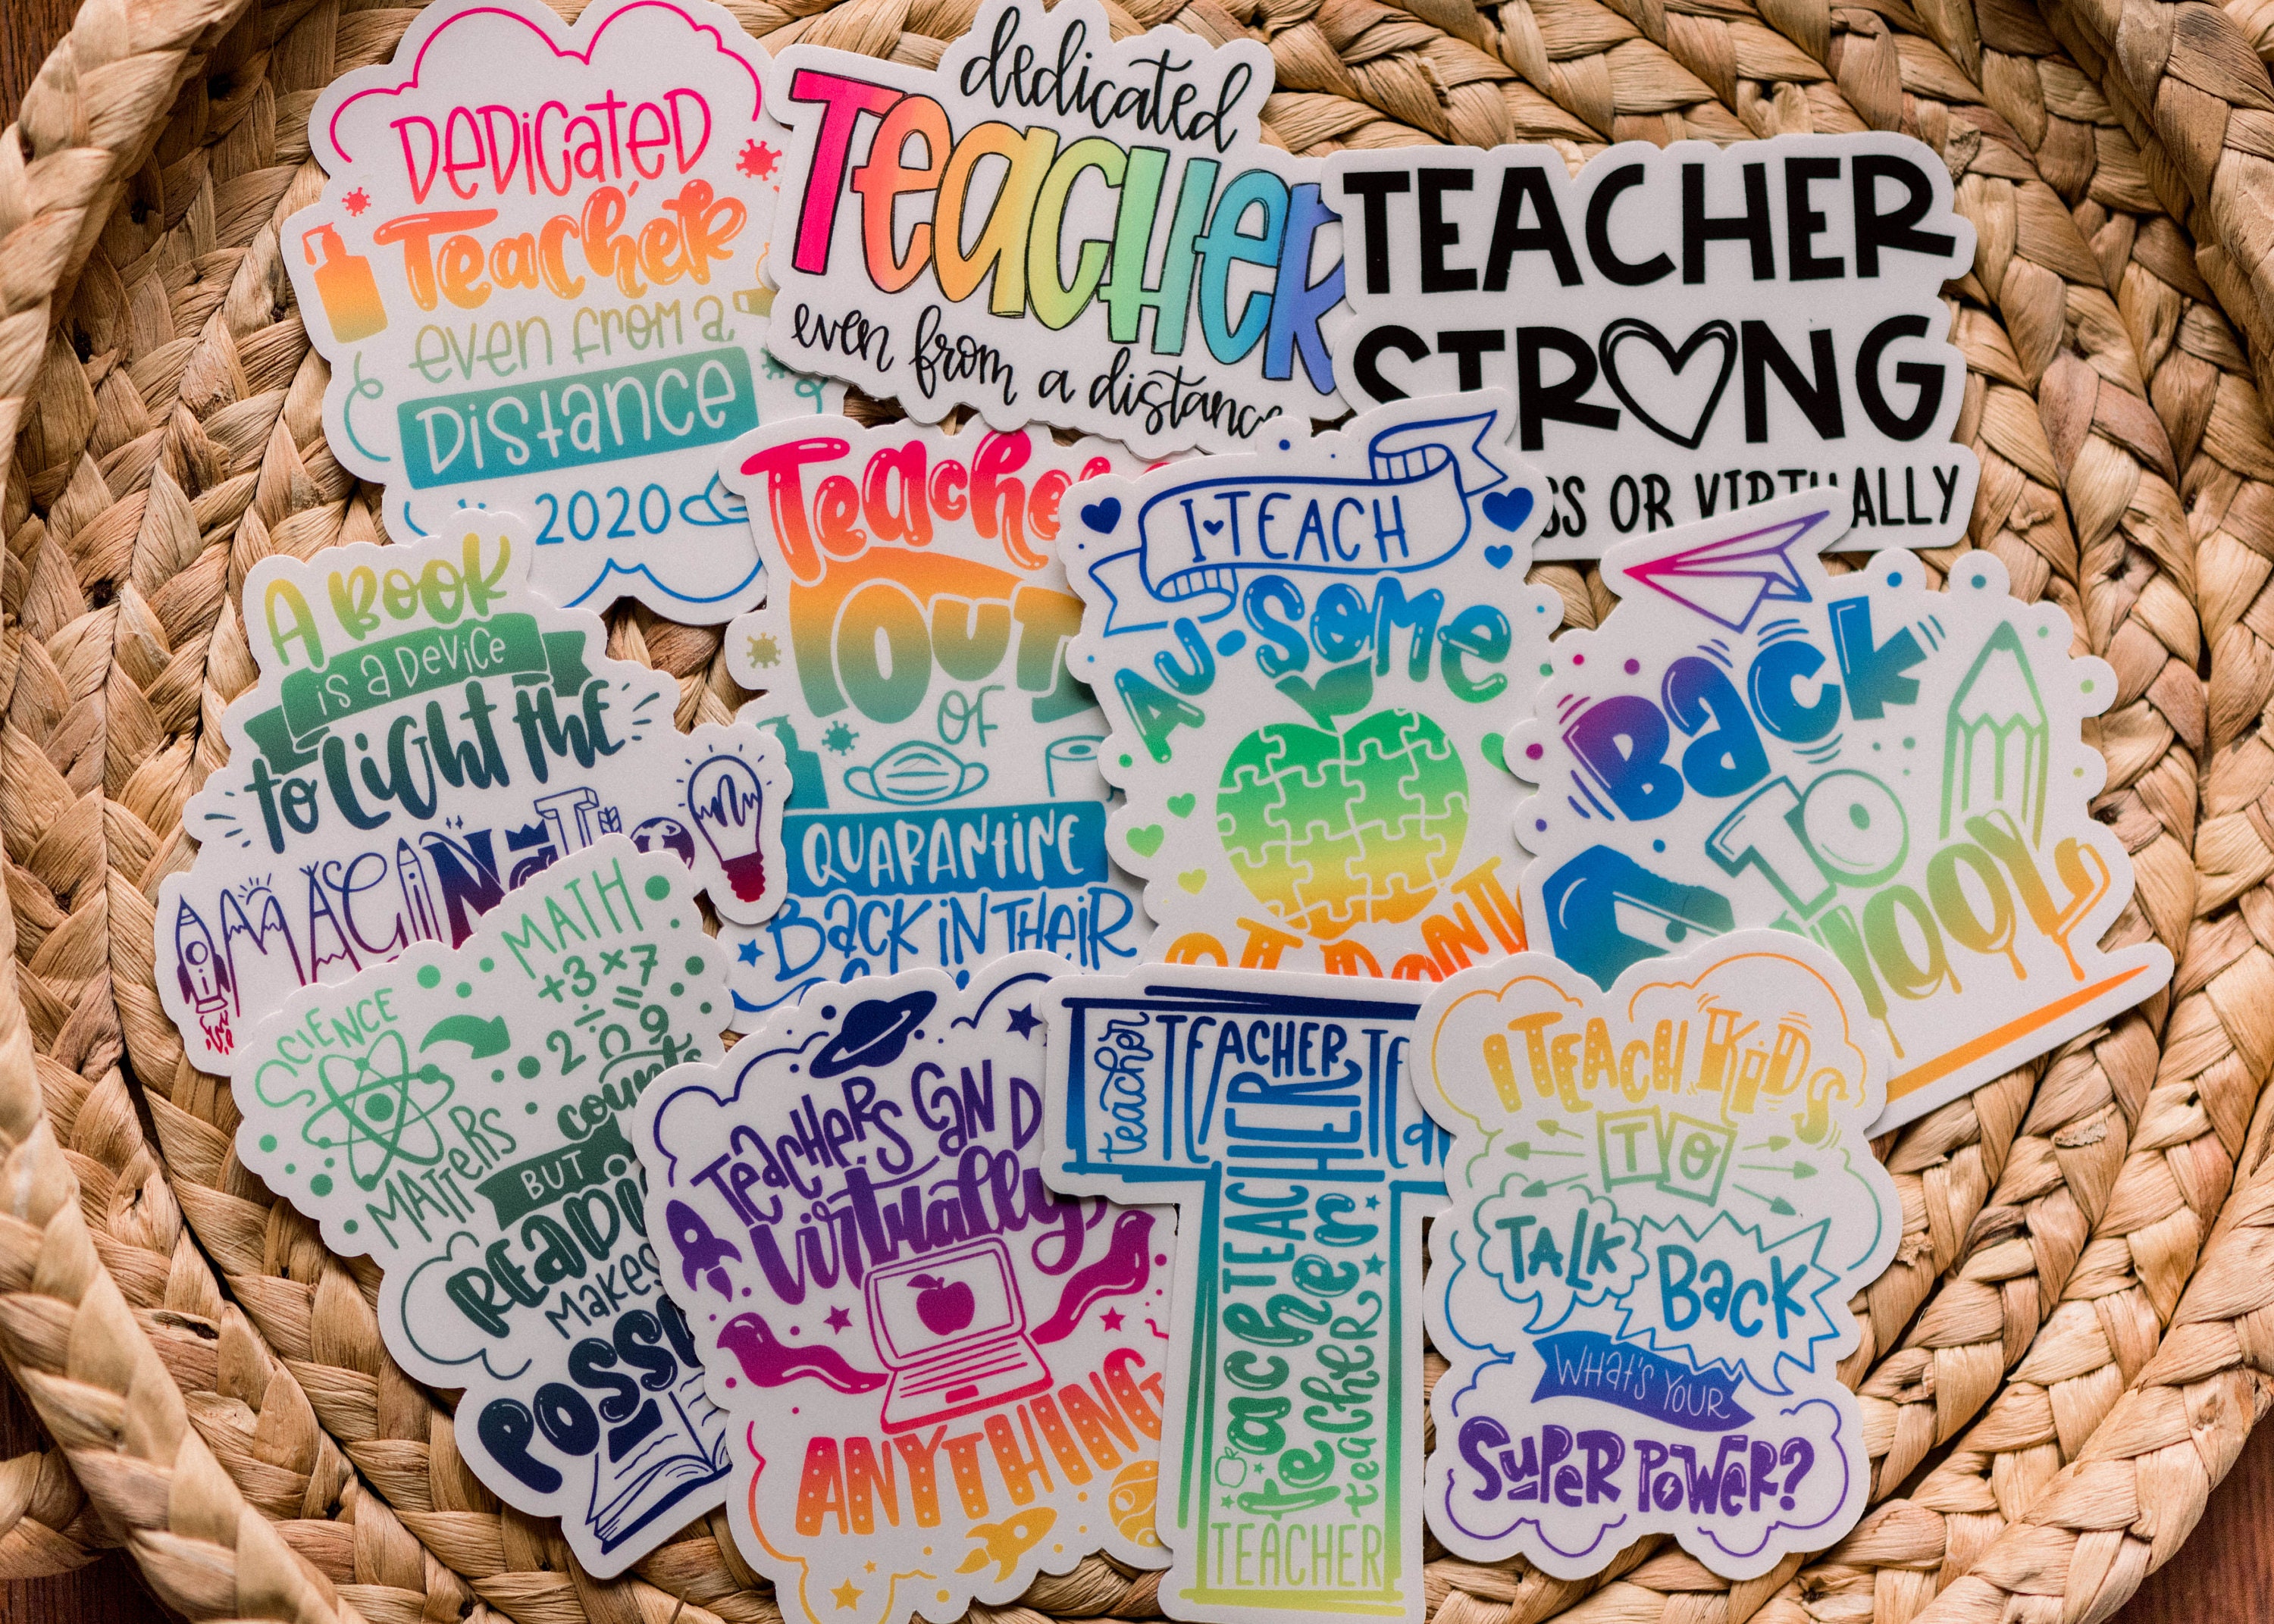 Dedicated
Teacher
even from a
Distance
2020
dedicated
Teacher
even from a distance
TEACHER
STRONG
OR VIRTUALLY
Teacher
OUT
OF
QUARANTINE
Back in Their
I TEACH
AU-Some
Back
TO
A Book
is a Device
to Light the
SCIENCE
MATTERS
MATH
+3×7
2÷0=9
counts
BUT
makes
Teachers Can D
virtually
ANYTHING
teacher TEACHER
TEACHER
TEACHER
teacher
teacher
teacher
TEACHER
I TEACH KiDS
TO
TALK
Back
WHAT'S YOUR
SUPER POWER?